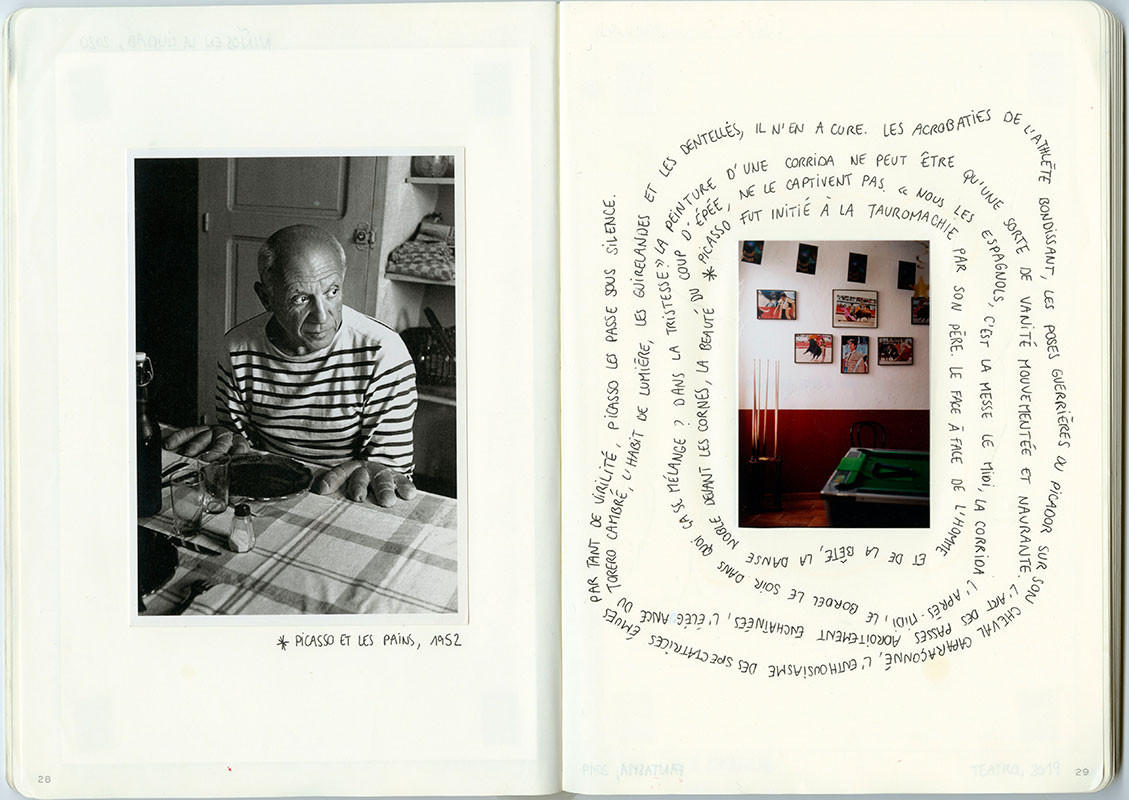 NIÑOS EN LA CIUDAD, 2020
* PICASSO ET LES PAINS, 1952
28
* PICASSO FUT INITIÉ À LA TAUROMACHIE PAR SON PÈRE. LE FACE À FACE DE L'HOMME ET DE LA BÊTE, LA DANSE NOBLE DEVANT LES CORNES, LA BEAUTÉ DU COUP D'ÉPÉE, NE LE CAPTIVENT PAS. « NOUS LES ESPAGNOLS, C'EST LA MESSE LE MIDI, LA CORRIDA L'APRÈS-MIDI, LE BORDEL LE SOIR. DANS QUOI ÇA SE MÉLANGE ? DANS LA TRISTESSE. » LA PEINTURE D'UNE CORRIDA NE PEUT ÊTRE QU'UNE SORTE DE VANITÉ MOUVEMENTÉE ET NAVRANTE. L'ART DES PASSES ADROITEMENT ENCHAÎNÉES, L'ÉLÉGANCE DU TORERO CAMBRÉ, L'HABIT DE LUMIÈRE, LES GUIRELANDES ET LES DENTELLES, IL N'EN A CURE. LES ACROBATIES DE L'ATHLÈTE BONDISSANT, LES POSES GUERRIÈRES DU PICADOR SUR SON CHEVAL CAPARAÇONNÉ, L'ENTHOUSIASME DES SPECTATRICES ÉMUES PAR TANT DE VIRILITÉ, PICASSO LES PASSE SOUS SILENCE.
FANTASMA, 2019
TEATRO, 2019
29